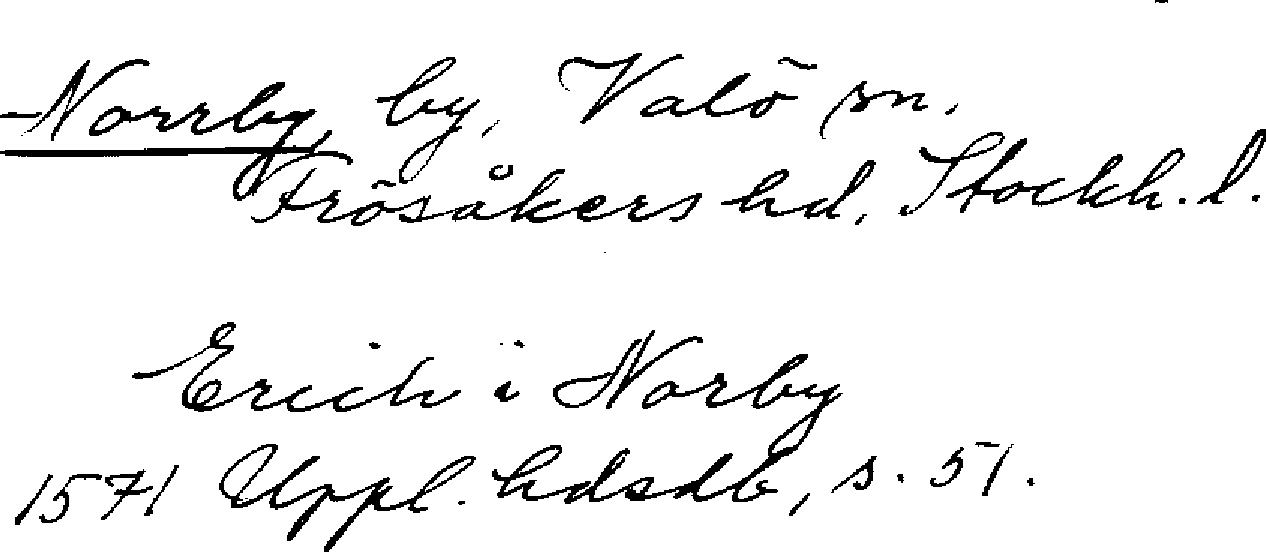 Norrby, by, Valö sn.
Frösåkers hd, Stockh. l.
Erich i Norby
1571 Uppl. hdsdb, s. 51.